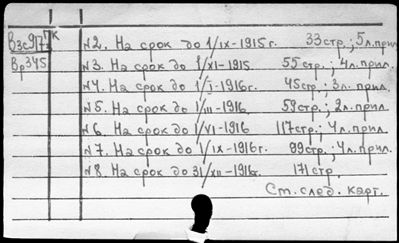 В3с9/7 7К №2. На срок до 1/IX-1915г. 33стр.; 5л.прил.
Вр345 №3. На срок до 1/XI-1915 55стр.; 4л.прил.
№4. На срок до 1/I-1916г. 45стр.; 3л.прил.
№5. На срок до 1/III-1916 59стр.; 2л.прил.
№6. На срок до 1/VI-1916 117стр.; 4л.прил.
№7. На срок до 1/IX-1916г. 99стр.; 4л.прил.
№8. На срок до 31/XII-1916г. 171стр.
См. след. карт.